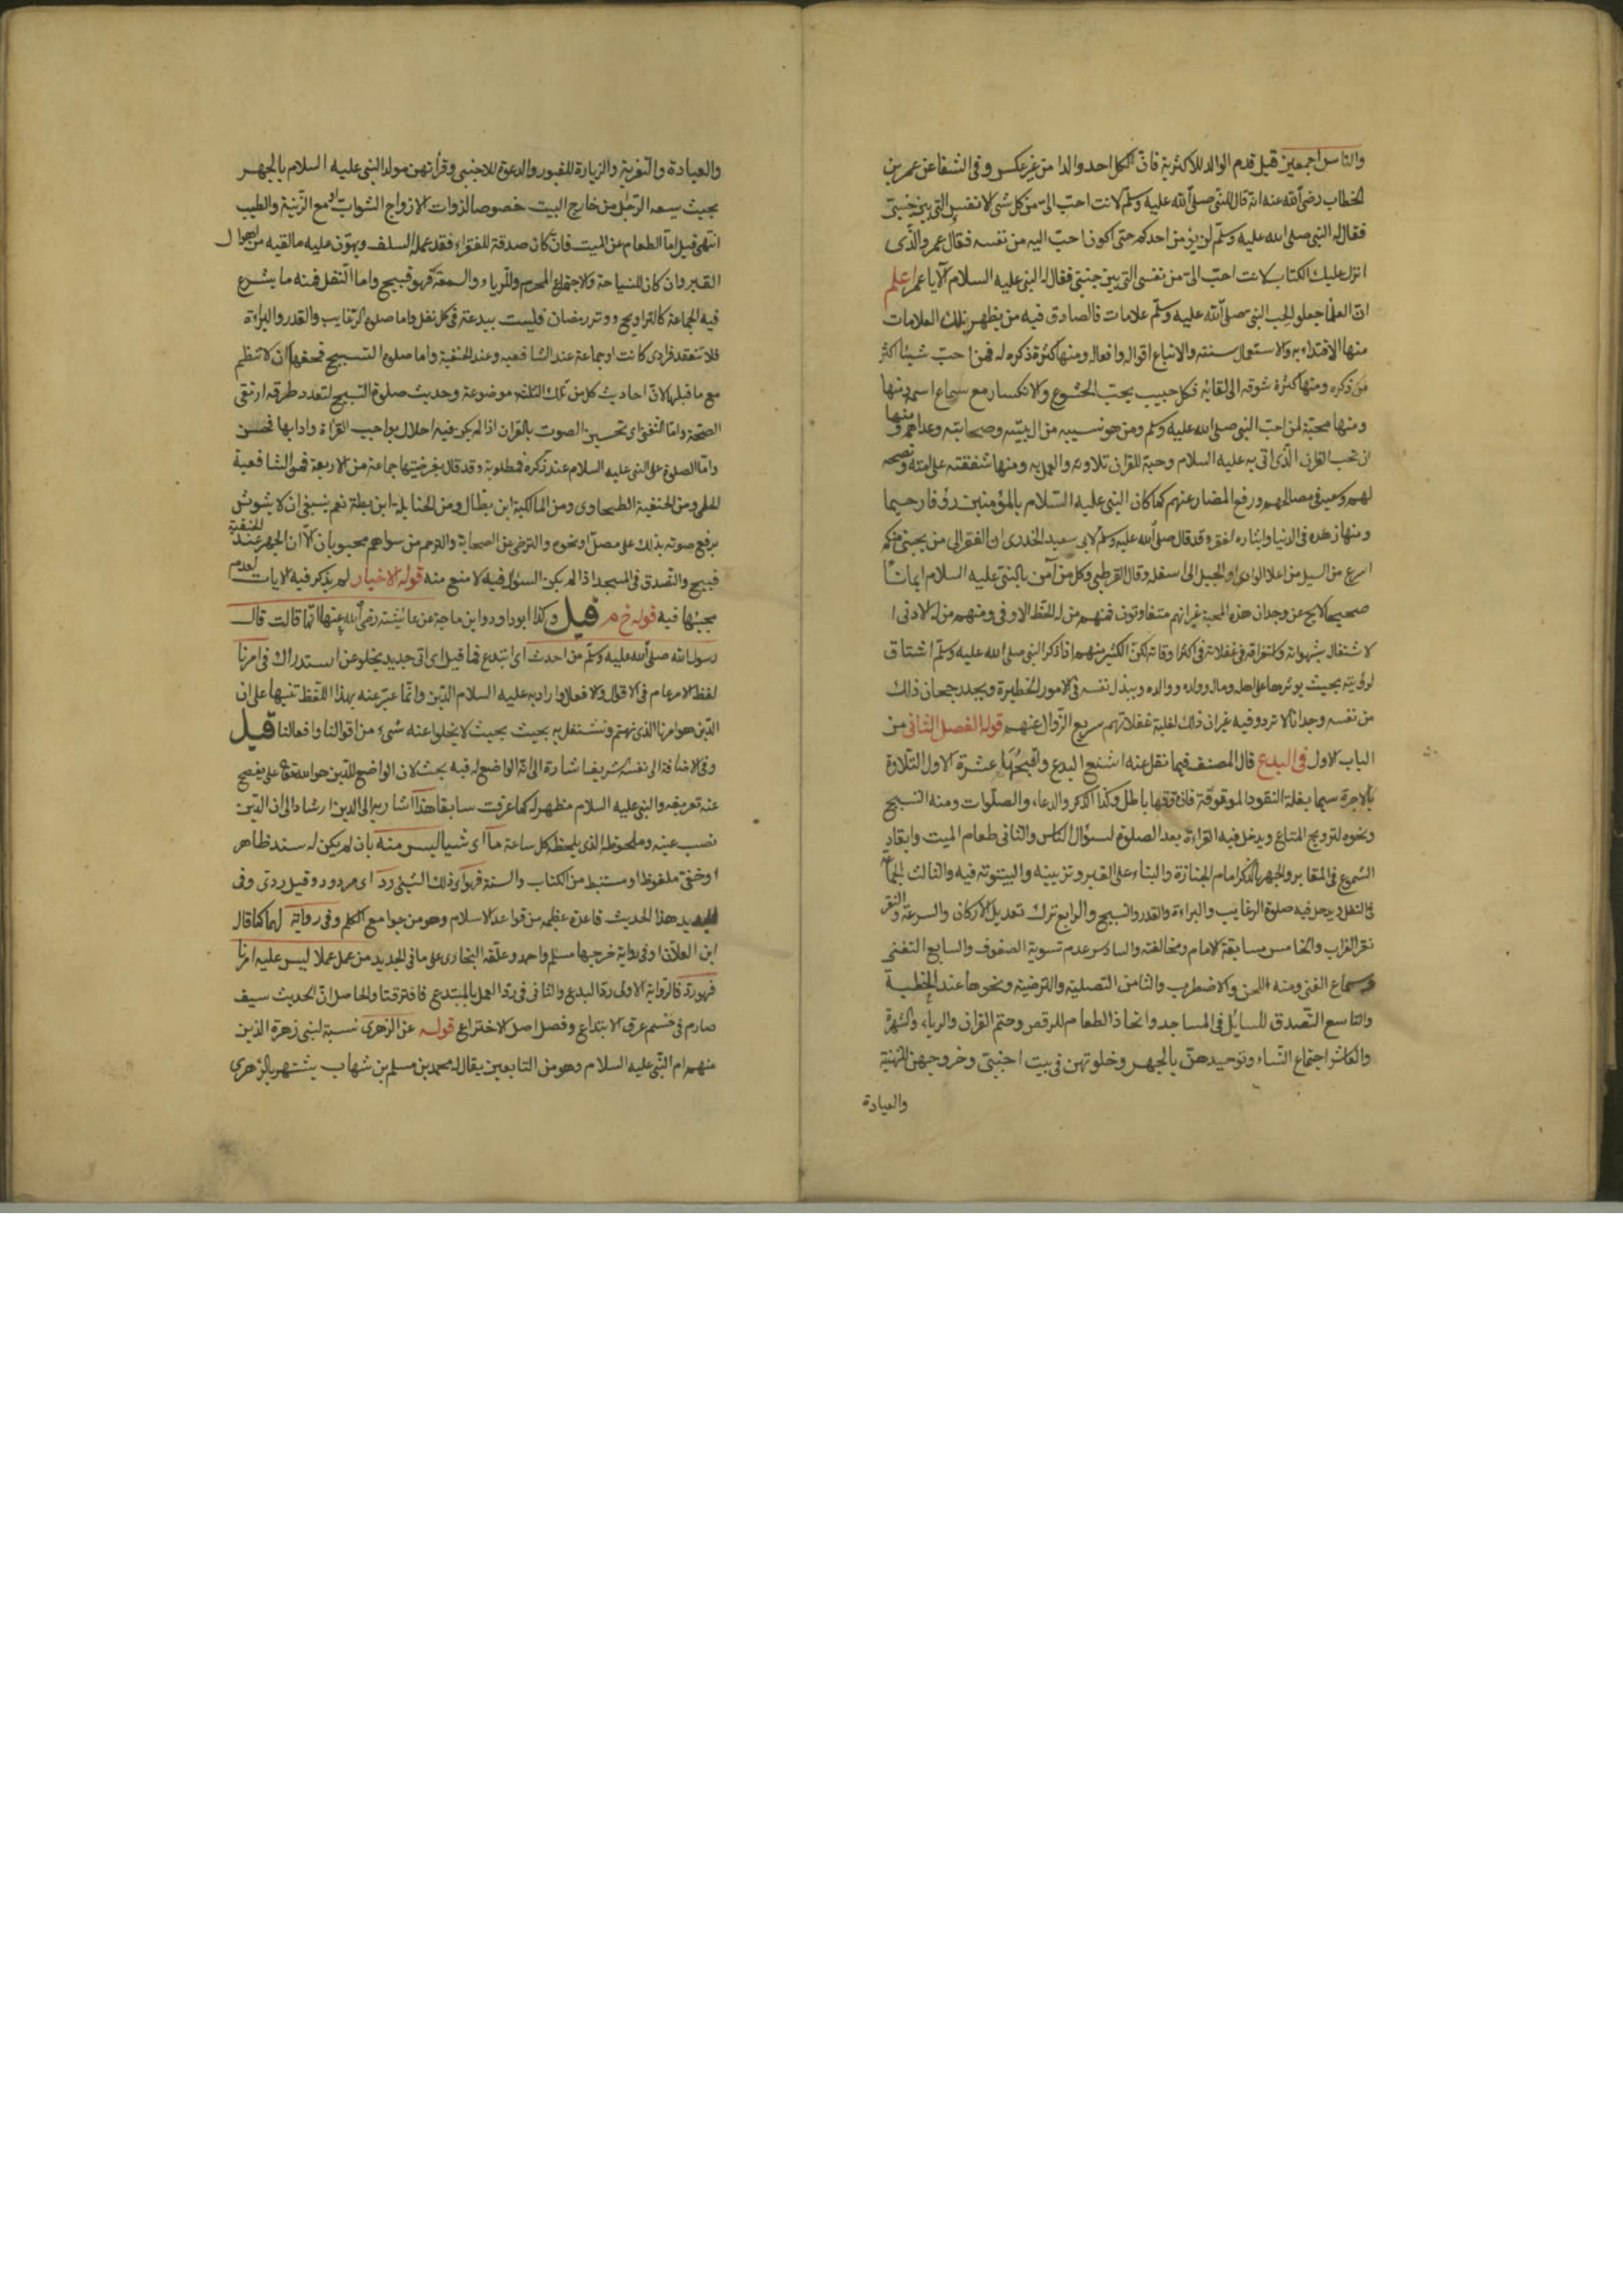 والناس اجمعين قيل قدم الوالد للاكثرية فان لكل احد والدا من غير عكس وفى الشفا عن عمر بن
الخطاب رضى الله عنه انه قال للنبى صلى الله عليه وسلم لانت احب الى من كل شئ الا نفسى التى بين جنبى
فقال له النبى صلى الله عليه وسلم لن يؤمن احدكم حتى اكون احب اليه من نفسه فقال عمر والذى
انزل عليك الكتاب لانت احب الى من نفسى التى بين جنبى فقال له النبى عليه السلام الان يا عمر اعلم
ان العلما جعلوا لحب النبى صلى الله عليه وسلم علامات فالصادق فيه من يظهر تلك العلامات
منها الاقتداء به والاستعمال سنته والاتباع اقواله وافعاله ومنها كثرة ذكره له فمن احب شيئا اكثر
من ذكره ومنها كثرة شوقه الى لقائه فكل حبيب يحب الخشوع والانكسار مع سماع اسمه ومنها
ومنها محبة لمن احب النبى صلى الله عليه وسلم ومن هو نسيبه من ال بيته وصحابته وعداهم ومنها
ان تحب القران الذى اتى به عليه السلام وحبة للقران تلاوته والعمل به ومنها شفقته على امته ونصحه
لهم وسعيه فى مصالحهم ورفع المضار عنهم كما كان النبى عليه السلام بالمؤمنين رؤفا رحيما
ومنها زهده فى الدنيا وايثاره لفقره وقد قال صلى الله عليه وسلم لابى سعيد الخدرى ان الفقر الى من يحبنى منكم
اسرع من السيل من اعلا الوادى او الجبل الى اسفله وقال القرطبى وكل من آمن بالنبى عليه السلام ايمانا
صحيحا لا يخ عن وجدان هذه المحبة غير انهم متفاوتون فمنهم من له الحظ الاوفى ومنهم من له الادنى
لاشتغال بشهواته واستغراقه فى غفلاته فى اكثر اوقاته لكن الكثير منهم اذا ذكر النبى صلى الله عليه وسلم اشتاق
لرؤيته بحيث يوثرها على اهله وماله وولده ووالده ويبذل نفسه فى الامور الخطيرة ويجد رجحان ذلك
من نفسه وجدانا لا تردد فيه غير ان ذلك لغلبة غفلاتهم سريع الزوال عنهم قوله الفصل الثانى من
الباب الاول فى البدع قال المصنف فيما نقل عنه اشنع البدع واقبحها عشرة الاول التلاوة
بالاجرة سيما بغلة النقود الموقوفة فان وقفها باطل وكذا الذكر والدعاء والصلوات ومنه التسبيح
ونحوه لترويج المتاع ويدخل فيه القراءة بعد الصلوة لسؤال الناس والثانى طعام الميت وايقاد
الشموع فى المقابر والجهر بالذكر امام الجنازة والبناء على القبر وتزيينه والبيتوتة فيه والثالث الجماعة
فى النفل ويدخل فيه صلوة الرغايب والبراءة والقدر والتسبيح والرابع ترك تعديل الاركان والسرعة والنقر
نقر الغراب والخامس مسابقة الامام ومخالفته والسادس عدم تسوية الصفوف والسابع التغنى
وسماع الغنى ومنه اللحن والاضطرب والثامن التصلية والترضية ونحوها عند الخطبة
والتاسع التصدق للسايل فى المساجد واتخاذ الطعام للرقص وختم القران والرياء والشهرة
والعاشر اجتماع النساء وتوحيدهن بالجهر وخلوتهن فى بيت اجنبى وخروجهن للتهنية
والعيادة
والعيادة والتعزية والزيارة للقبور والدعوة للاجنبى وقرأتهن مولد النبى عليه السلام بالجهر
بحيث يسمعه الرجل من خارج البيت خصوصا لذوات الازواج الشواب او مع الزينة والطيب
انتهى قيل اما الطعام عن الميت فان كان صدقة للفقراء فقد عمله السلف ويهون عليه ما لقيه من اهوال
القبر وان كان للنياحة والاجتماع المحرم وللرياء والسمعة فهو قبيح واما النفل فمنه ما يشرع
فيه الجماعة كالتراويح ووتر رمضان فليست ببدعة فى كل نفل واما صلوة الرغايب والقدر والبراءة
فلا تنعقد فرادى كانت او جماعة عند الشافعية وعند الحنفية واما صلوة التسبيح فحقها ان لا تنظم
مع ما قبلها لان احاديث كل من تلك الثلثة موضوعة وحديث صلوة التسبيح لتعدد طرقه ارتقى
الصحة واما التغنى اى تحسين الصوت بالقران اذا لم يكن فيه اخلال بواجب القراة وادابها فحسن
واما الصلوة على النبى عليه السلام عند ذكره فمطلوبة وقد قال بفرضيتها جماعة من الاربعة فمن الشافعية
الحلمى ومن الحنفية الطحاوى ومن المالكية ابن بطال ومن الحنابلة ابن بطة نعم ينبغى ان لا يشوش
برفع صوته بذلك على مصل او نحوه والترضى عن الصحابة والترحم من سواهم محبوبان الا ان الجهر عند الحنفية
قبيح والتصدق فى المسجد اذا لم يكن السؤال فيه لا منع منه قوله الاخبار لم يذكر فيه الايات لعدم
مجيئها فيه قوله خ م قيل وكذا ابو داود وابن ماجة عن عائيشة رضى الله عنها انها قالت قال
رسول الله صلى الله عليه وسلم من احدث اى ابتدع فما قيل اى اتى جديد يخلو عن استدراك فى امرنا
لفظ الامر عام فى الاقوال والافعال واراد به عليه السلام الدين وانما عبر عنه بهذا اللفظ تنبيها على ان
الدين هو امرنا الذى نهتم ونشتغل به بحيث بحيث لا يخلوا عنه شئ من اقوالنا وافعالنا قيل
وفى الاضافة الى نفسه شريفا اشارة الى انه الواضع له فيه بحث لان الواضع للدين هو الله تعالى على يفصح
عنه تعريفه والنبى عليه السلام مظهر له كما عرفت سابقا هذا اشار به الى الدين ارشادا الى ان الدين
نصب عينه وملحوظه الذى يلحظه كل ساعة ما اى شيا ليس منه بان لم يكن له سند ظاهر
او خفى ملفوظ او مستنبط من الكتاب والسنة فهو اى ذلك الشئ رد اى مردود وقيل ردى وفى
هذا الحديث قاعدة عظيمة من قواعد الاسلام وهو من جوامع الكلم وفى رواية لهما كما قاله
ابن العلان او فى رواية خرجها مسلم واحمد وعلقه البخارى على ما فى الجديد من عمل عملا ليس عليه امرنا
فهو رد فالرواية الاولى رد البدع والثانى فى رد العمل بالمبتدع فافترقتا والحاصل ان الحديث سيف
صارم فى حسم عرق الابتداع وفصل اصل الاختراع قوله عن الزهرى نسبة لبنى زهرة الذين
منهم ام النبى عليه السلام وهو من التابعين يقال له محمد بن مسلم بن شهاب يشتهر بالزهرى